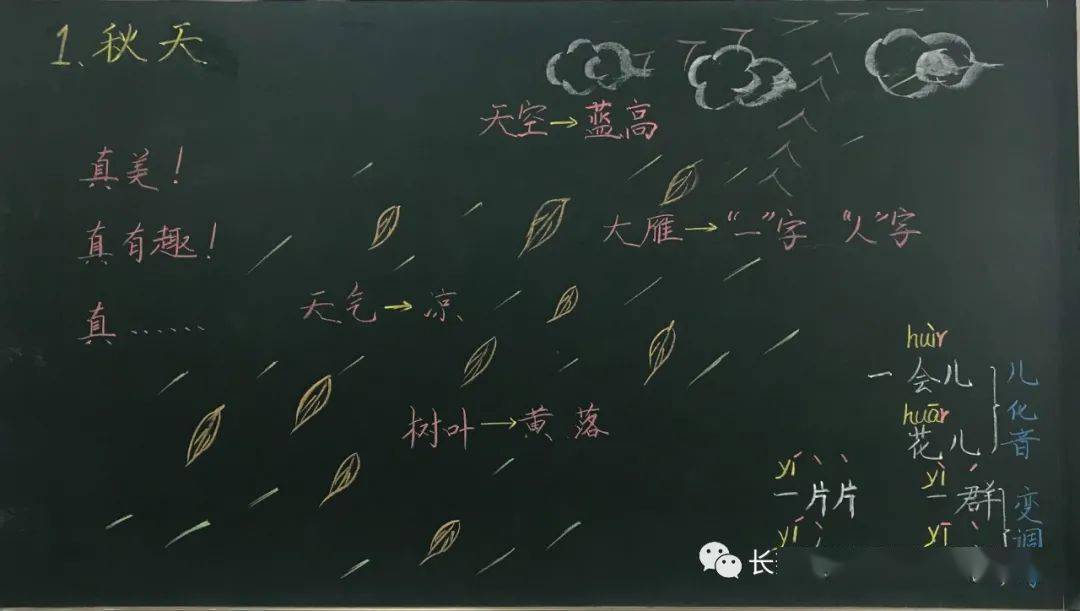 1.秋天
天空→蓝高
真美!
真有趣!
大雁→“一”字 “人”字
天气→凉
真……
huìr
一会儿
huār
花儿
儿化音
树叶→黄 落
yí
一片片
yì
一群
变调
yí
yī
长